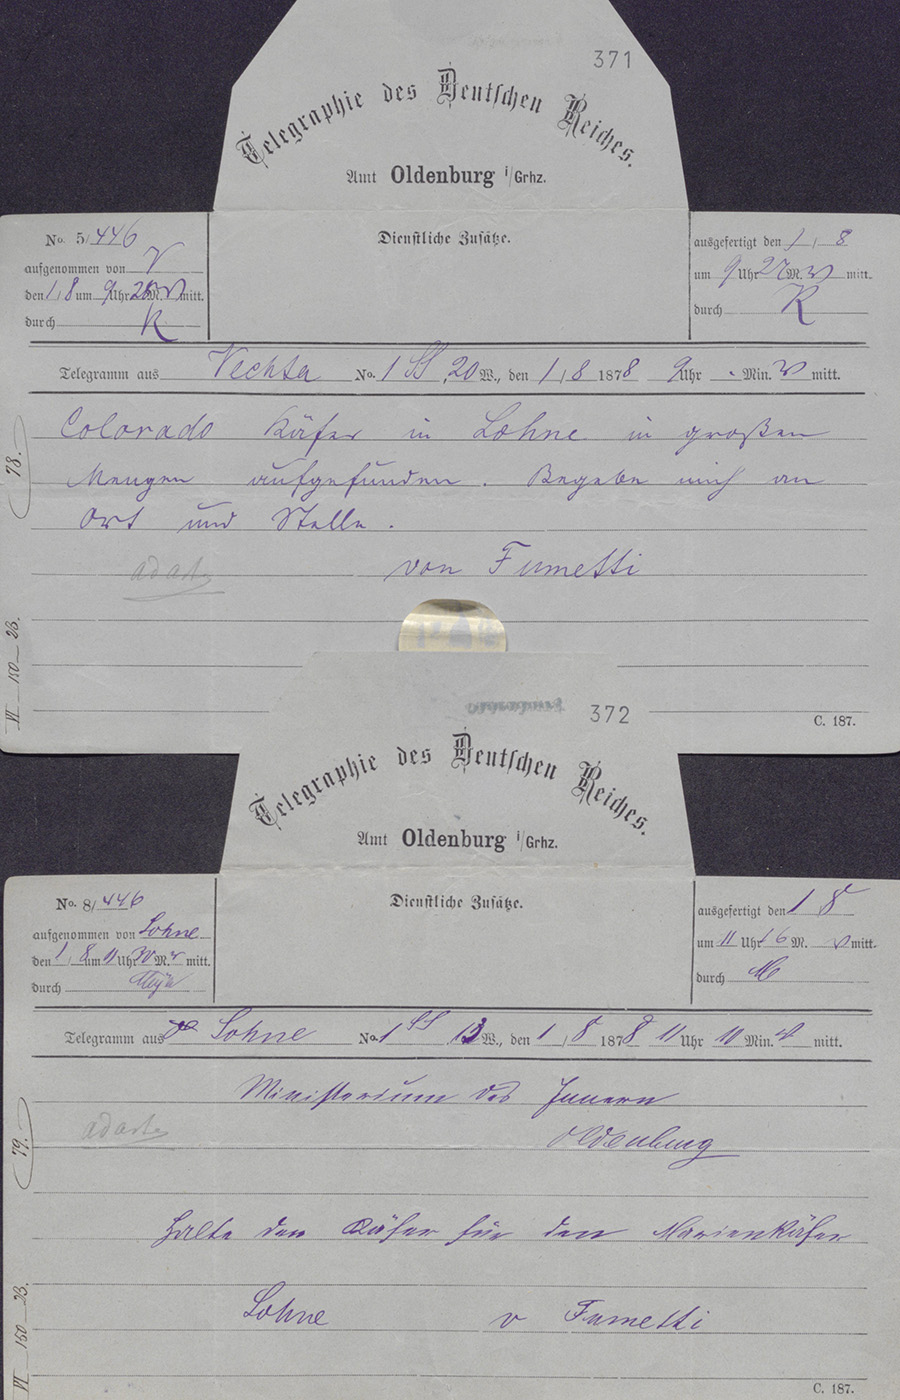 371
Telegraphie des Deutschen Reiches.
Amt Oldenburg i/Grhz.
No. 5/446
aufgenommen von V
den 1/8 um 9 Uhr 25 M. V mitt.
durch R
Dienstliche Zusätze.
ausgefertigt den 1/8
um 9 Uhr 27 M. V mitt.
durch R
Telegramm aus Vechta No. 1 SS 20 W., den 1/8 1878 9 Uhr - Min. V mitt.
Colorado Käfer in Lohne in großen
Mengen aufgefunden. Begebe mich an
Ort und Stelle.
von Fumetti
ad acta
78.
VI 150 23.
C. 187.
Oldenburg
372
Telegraphie des Deutschen Reiches.
Amt Oldenburg i/Grhz.
No. 8/446
aufgenommen von Lohne
den 1/8 um 11 Uhr 30 M. V mitt.
durch
Dienstliche Zusätze.
ausgefertigt den 1 8
um 11 Uhr M. V mitt.
durch M
Telegramm aus Lohne No. 1 SS 13 W., den 1/8 1878 11 Uhr 11 Min. V mitt.
Ministerium des Innern
Oldenburg
ad acta
79.
Halte den Käfer für den Marienkäfer
Lohne v Fumetti
VI 150 23.
C. 187.